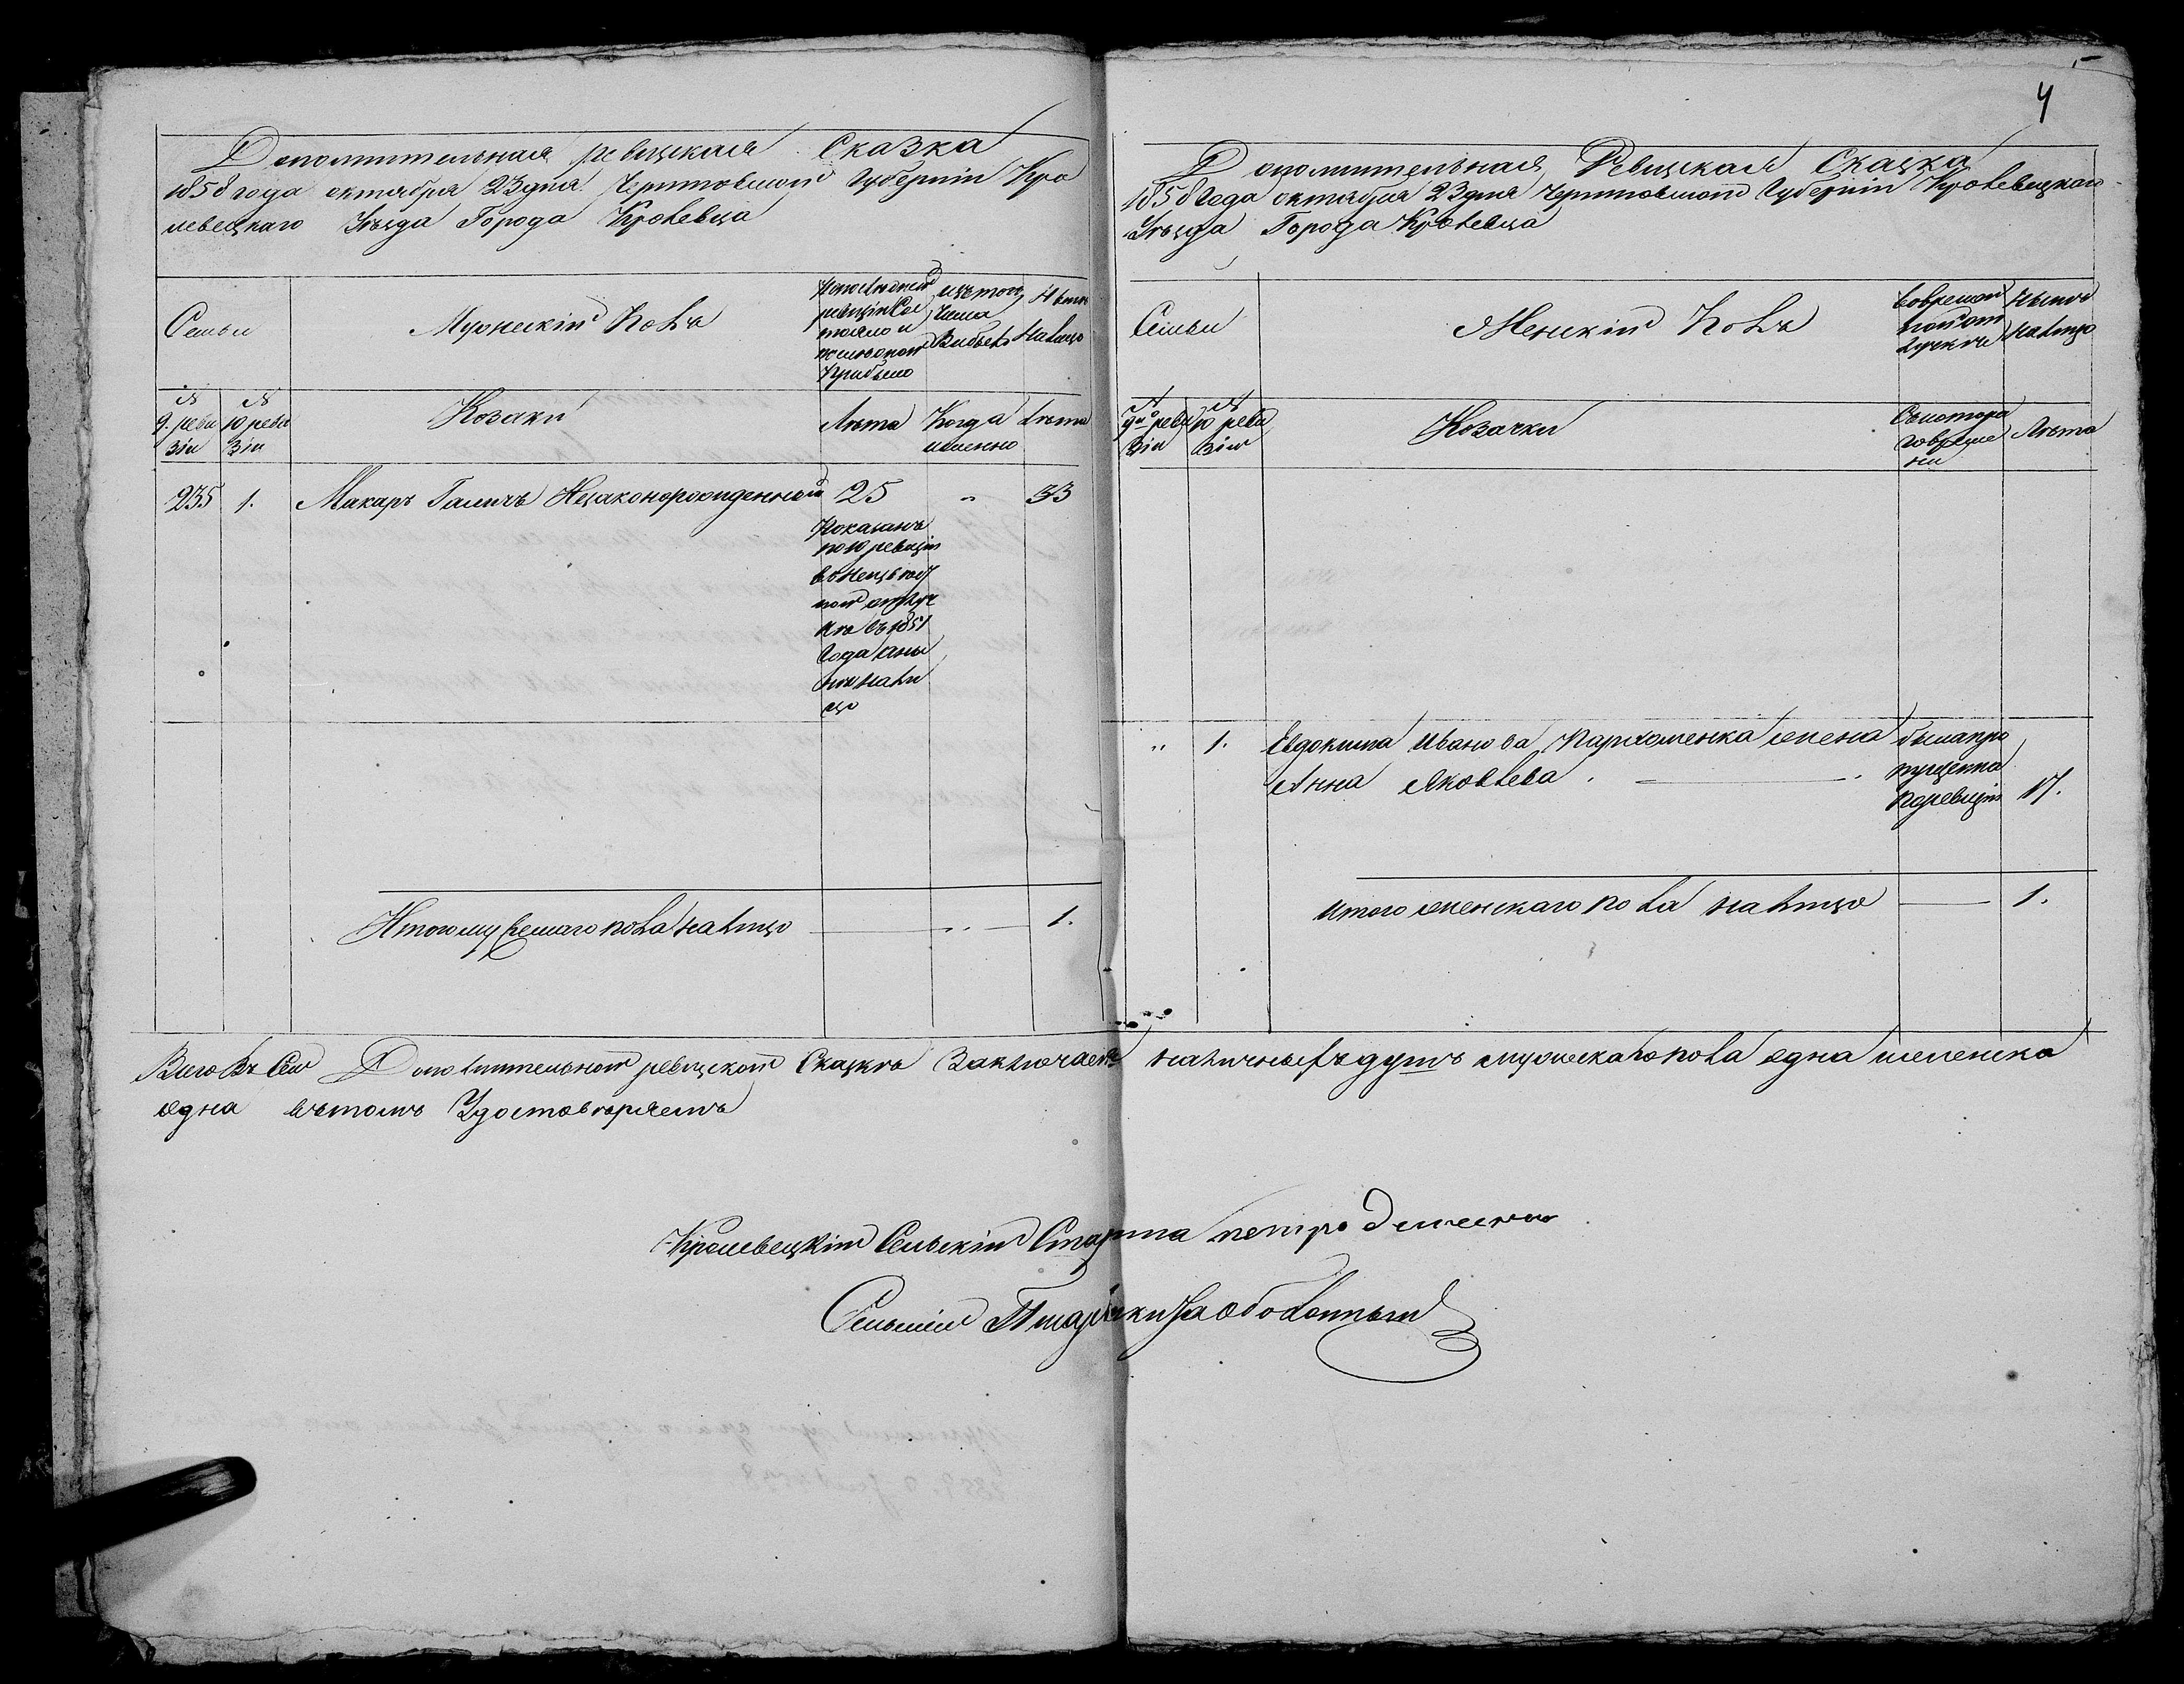 Дополнительная ревизская Сказка
1858 года октября 23 дня Черниговской Губерніи Кро
левецкаго Уѣзда Города Кролевца
Семьи
Мужескій Полъ
По последней
ревизіи Сос
тояло и
после оной
Прибыло
изъ того
числа
Выбыло
Нынѣ
Налицо
№
9. реви
зіи
№
10 реви
зіи
Козаки
Лѣта
Когда
именно
Лѣта
235
1.
Макаръ Галичъ Незаконорожденный
25
"
33
Показанъ
по 10 ревизіи
въ
ной отлуч
кѣ съ 1851
года а ны
нѣ нали
цо
Итого мужескаго пола налицо
"
1.
4
Дополнительная Ревизская Сказка
1858 года октября 23 дня Черниговской Губерніи Кролевецкаго
Уѣзда Города Кролевца
Семьи
Женскій Полъ
Вовремен
ной от
лучкѣ
Нынѣ
налицо
№
9й реви
зіи
№
10 реви
зіи
Козачки
Съкотора
го време
ни
Лѣта
"
1.
Евдокима Иванова Пархоменка жена
Анна Яковлева
была про
пущенна
поревизіи
17.
Итого женскаго пола налицо
1.
Всего Въ Сей Дополнительной ревизской Сказкѣ Заключается наличныхъ душъ мужескаго пола одна и женска
одна вътомъ Удостовѣряемъ
Кролевецкій Сельскій Старшина Петро
Сельскій Писарь